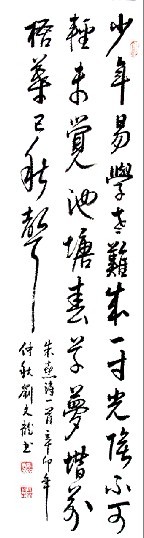 少年易學老難成一寸光陰不可
輕未覺池塘春草夢堦前
梧葉已秋聲
朱熹詩一首辛卯年
仲秋劉文龍書